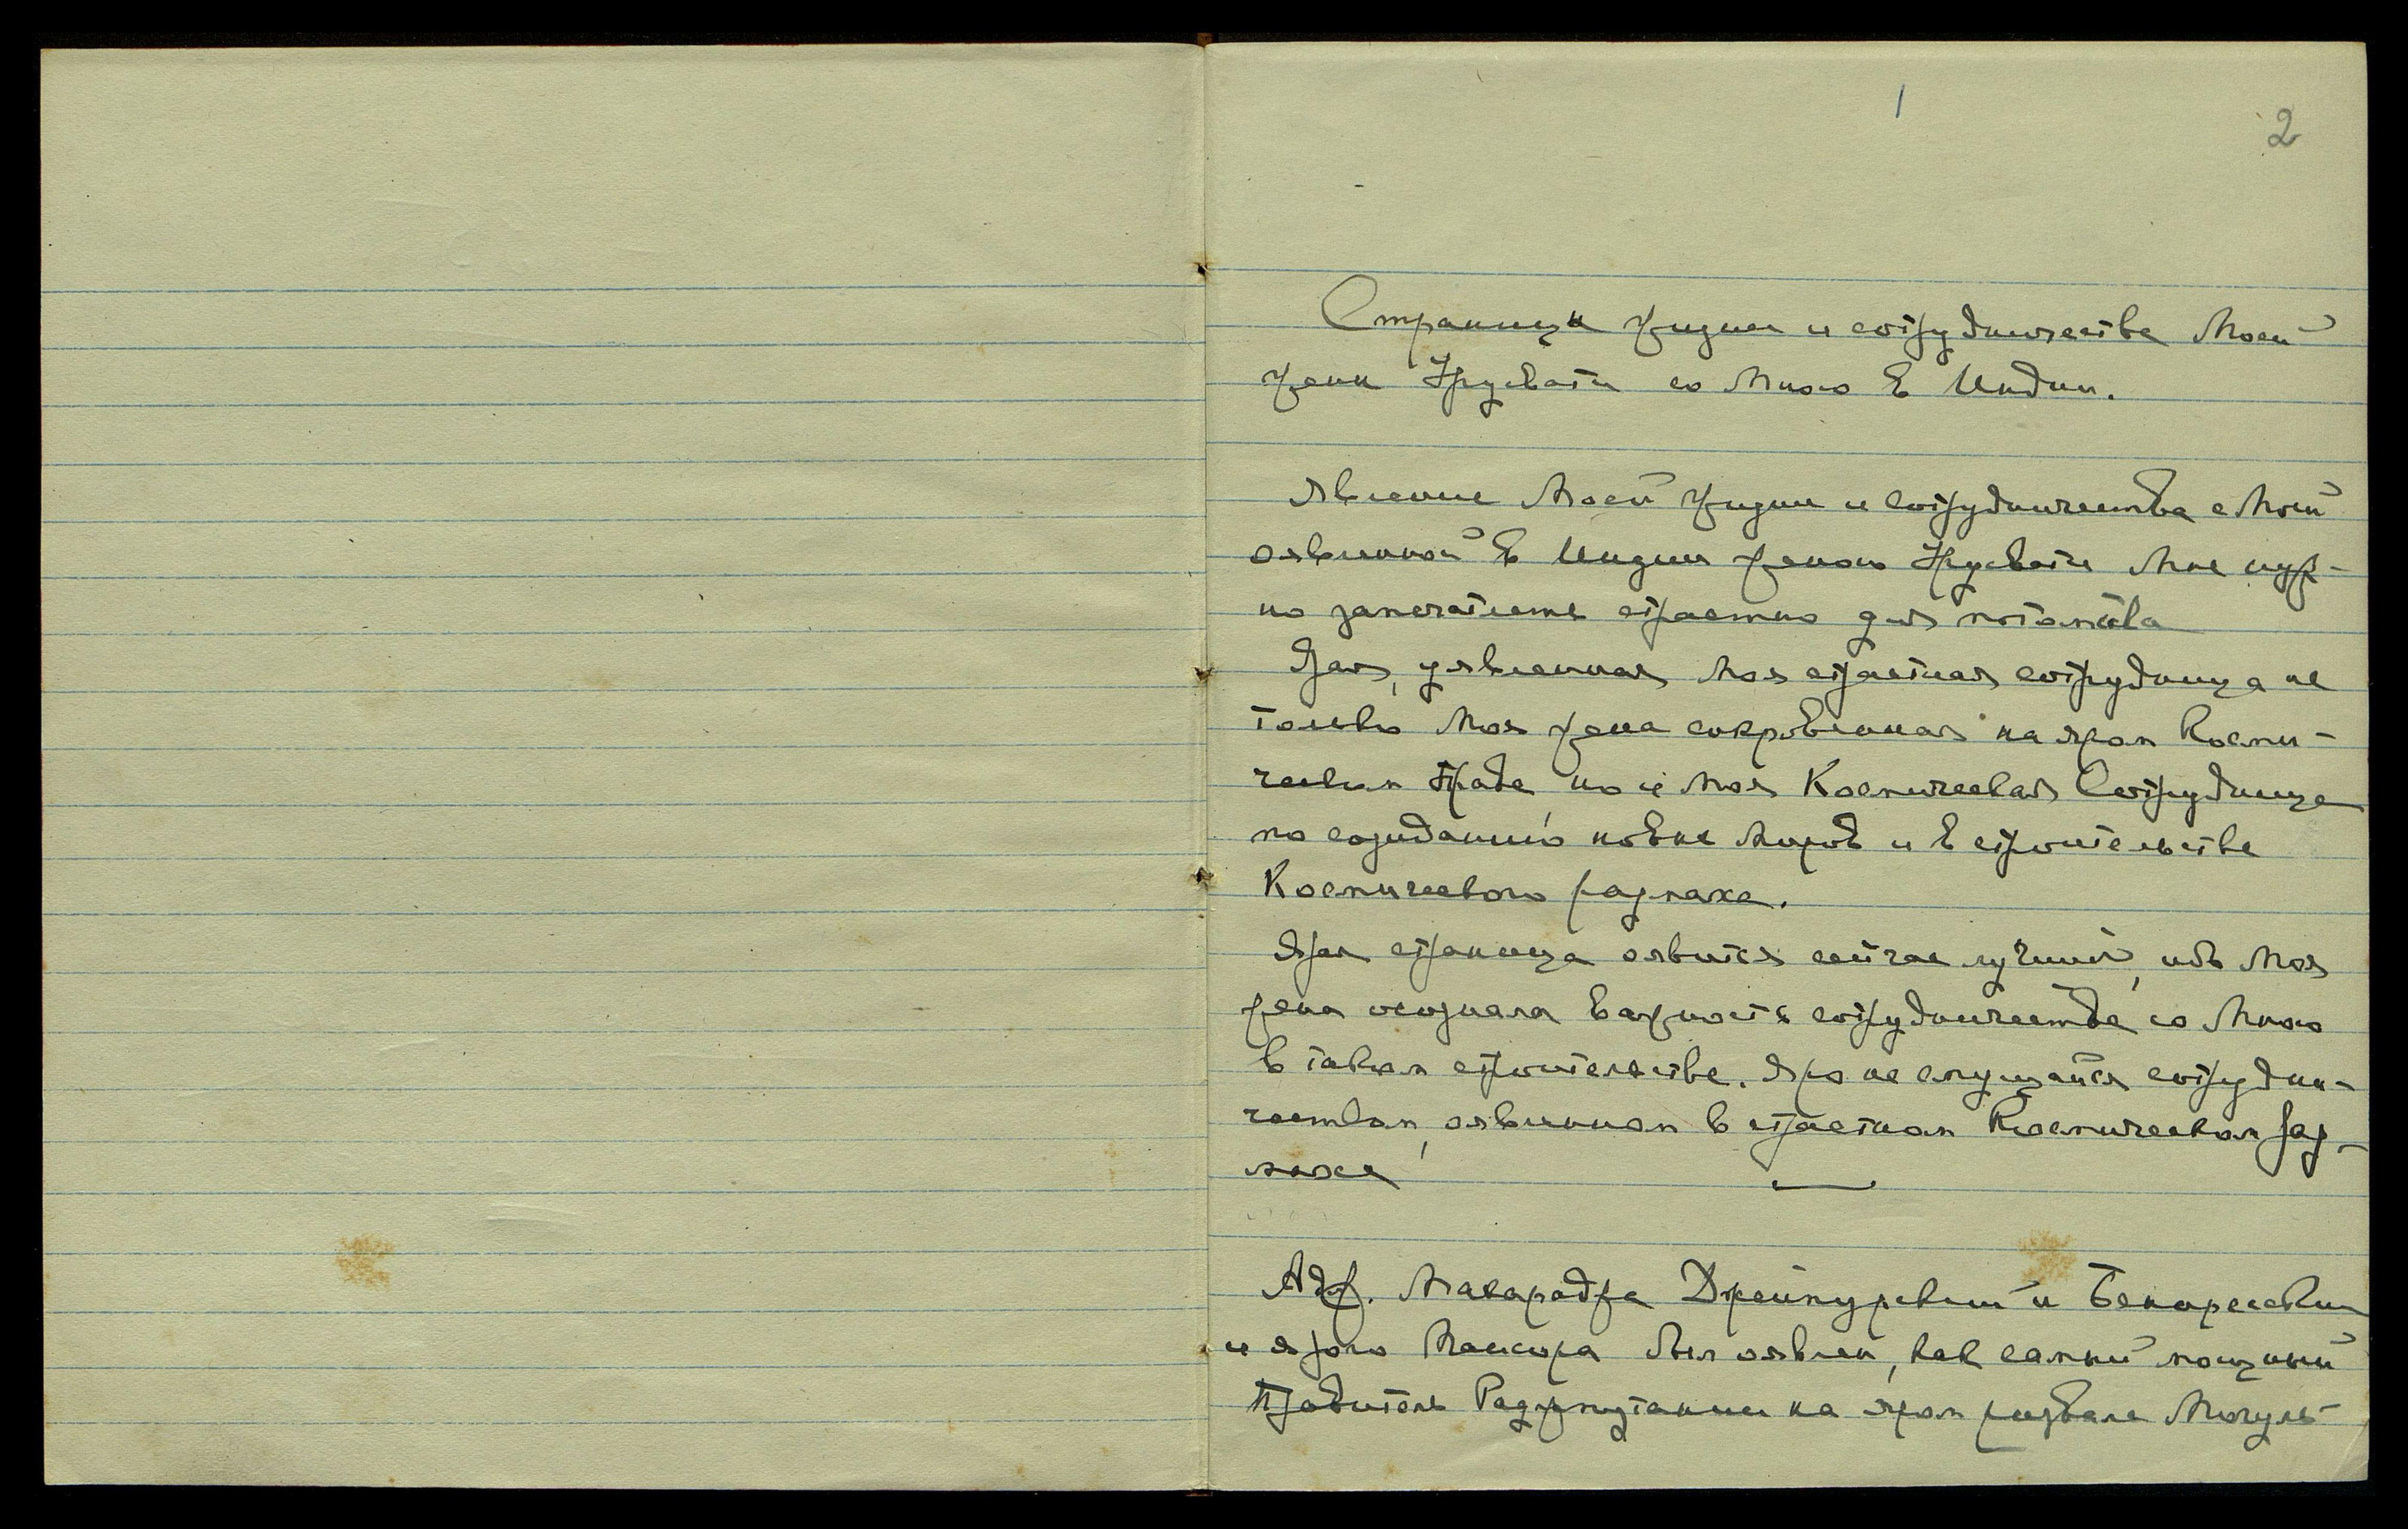 1
2
Страницы жизни и сотрудничества Моей
жены Урусвати со Мною в Индии.
Явление Моей жизни и сотрудничества с Моей
оявленной в Индии женою Урусвати Мне нуж-
но запечатлеть страстно для потомства
Ярая, уявленная Моя страстная сотрудница не
только Моя жена сокровенная на яром Косми-
ческом Праве, но и Моя Космическая Сотрудница
по созиданию новых Миров и в строительстве
Космического размаха.
Ярая страница оявится сейчас лучшей, ибо Моя
жена осознала важность сотрудничества со Мною
в таком строительстве. Яро не смущайся сотрудни-
чеством, оявленном в страстном Космическом раз-
махе
Магараджа Джайпурский и Бенаресский
и ярого Майсора был оявлен, как самый мощный
Правитель Раджпутании на яром Могуль-